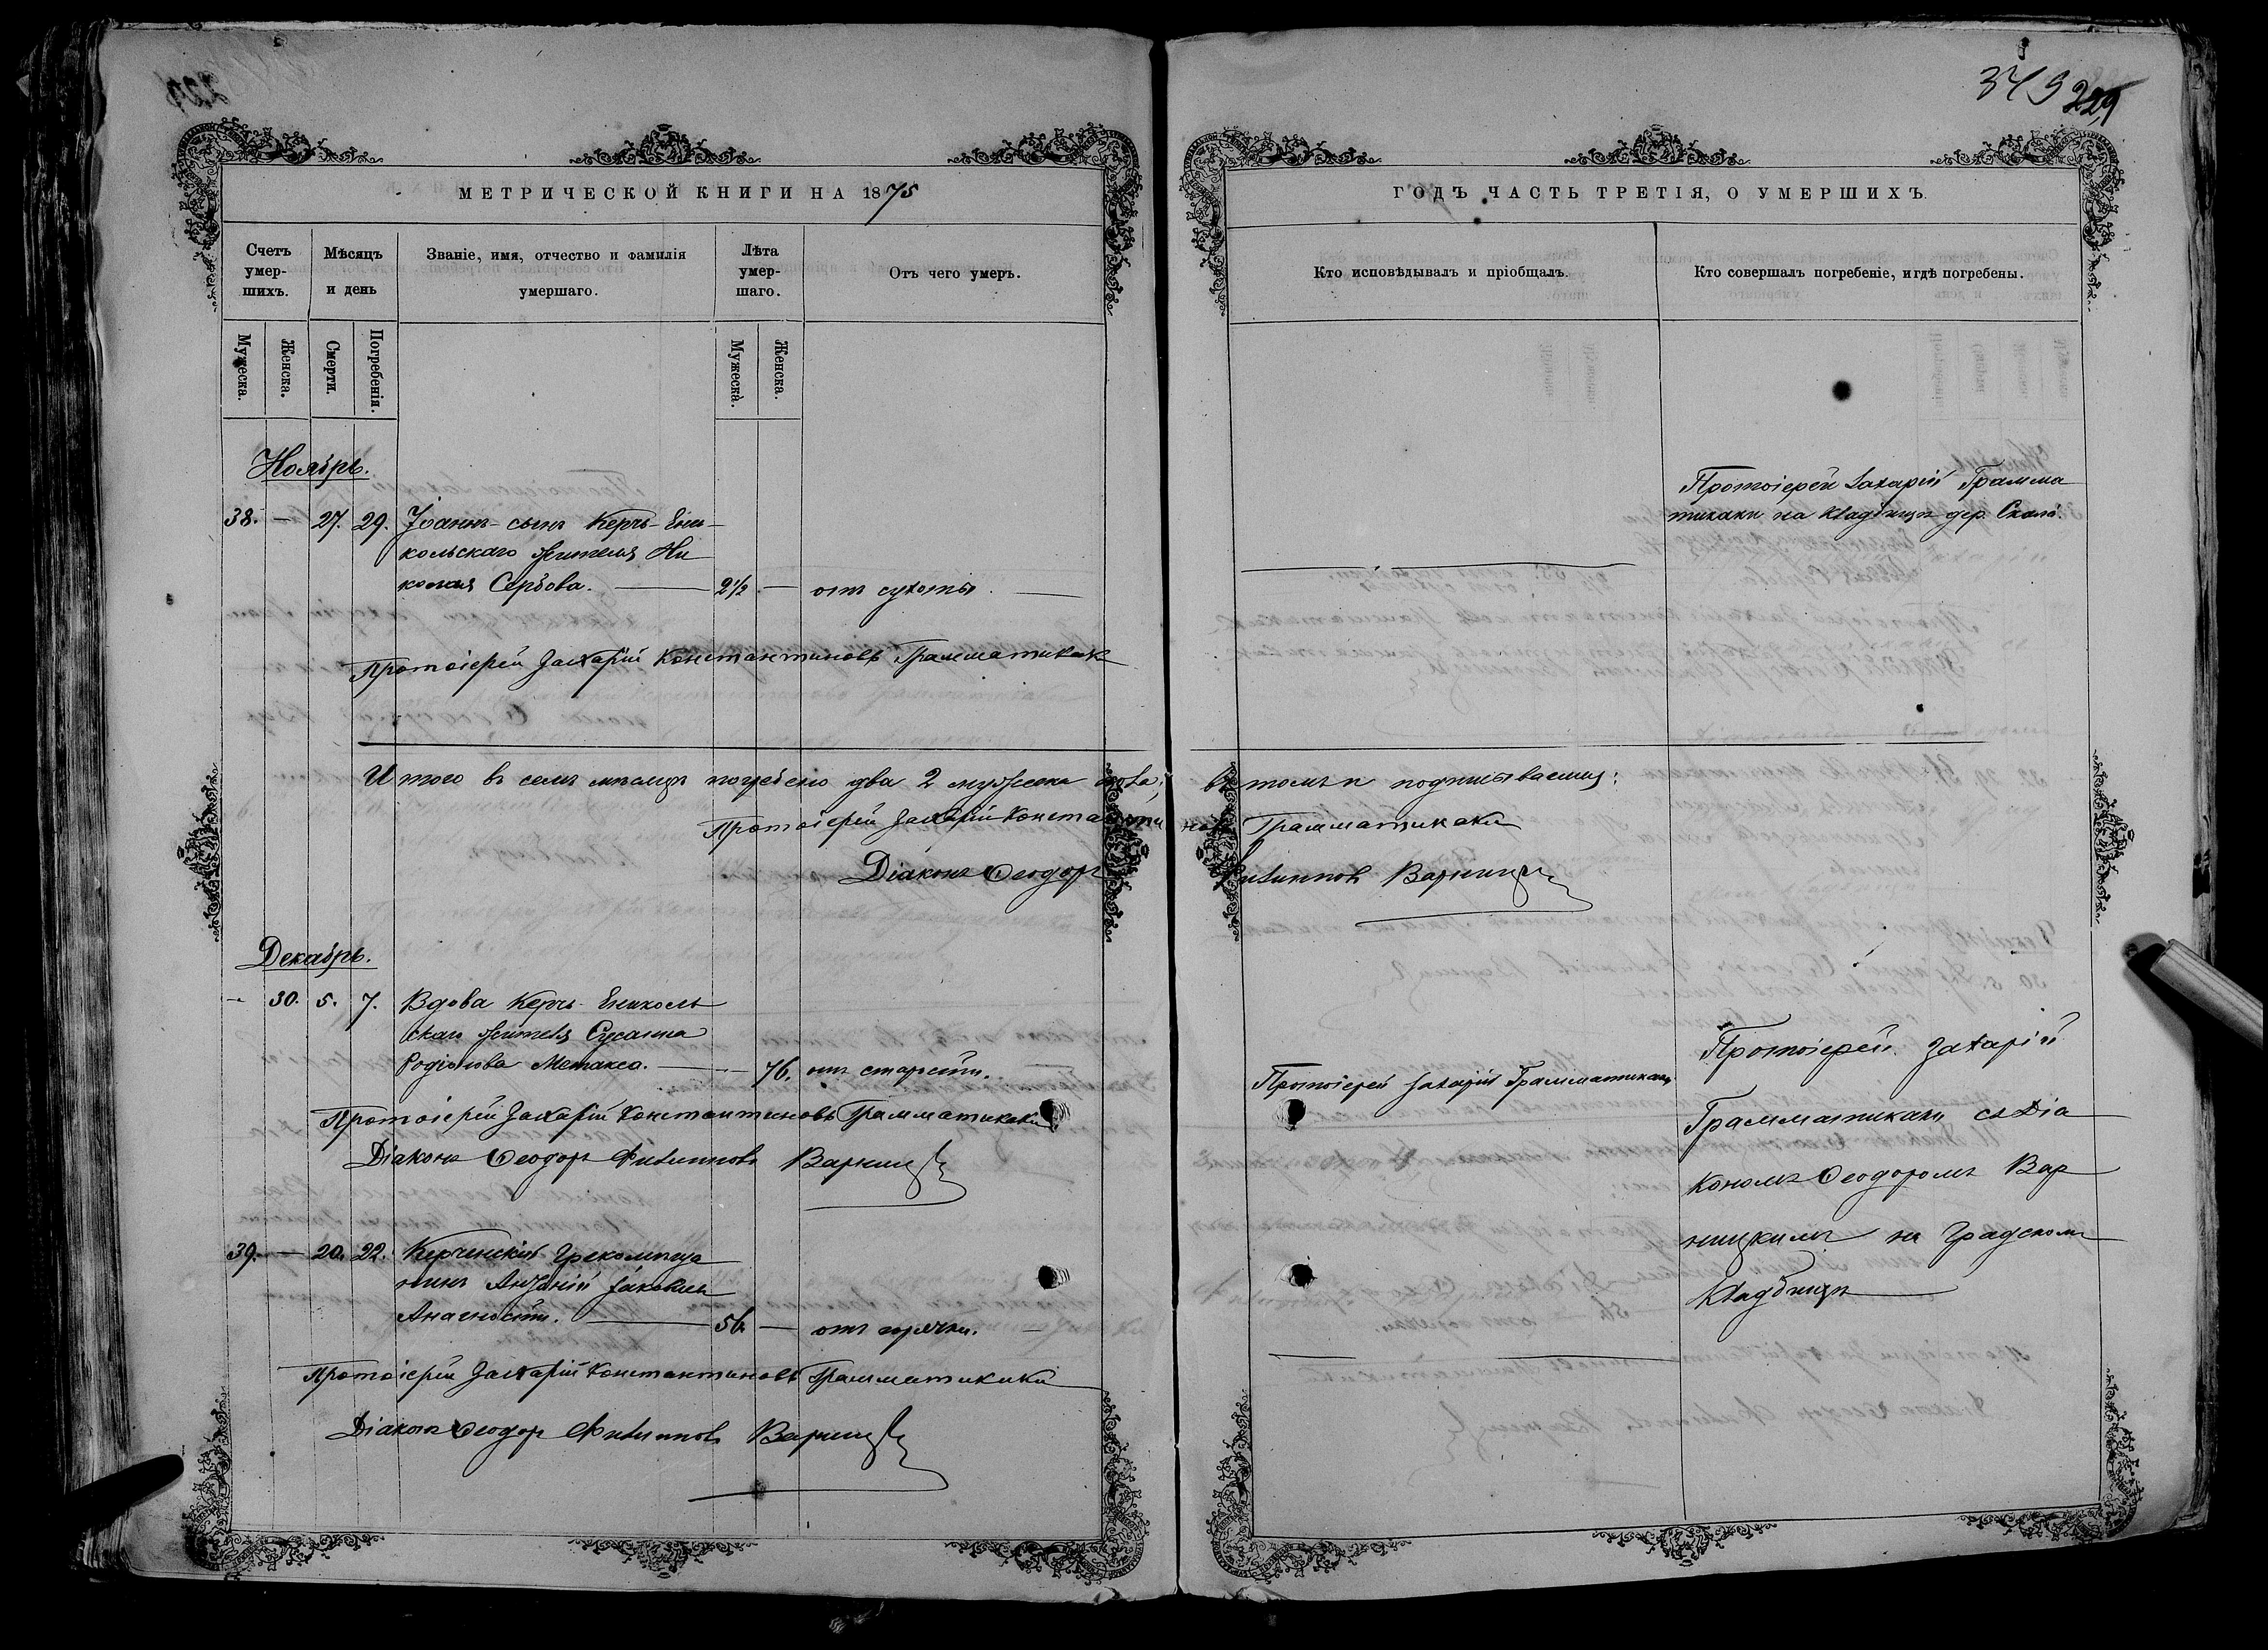 349 229
МЕТРИЧЕСКОЙ КНИГИ НА 1875
ГОДЪ ЧАСТЬ ТРЕТІЯ, О УМЕРШИХЪ.
Счетъ умер-шихъ.
Мѣсяцъ и день
Званіе, имя, отчество и фамилія умершаго.
Лѣта умер-шаго.
Отъ чего умеръ.
Кто исповѣдывалъ и пріобщалъ.
Кто совершалъ погребеніе, и гдѣ погребены.
Мужеска.
Женска.
Смерти.
Погребенія.
Мужеска.
Женска.
Ноябрь.
38. — 27. 29. Іоаннъ сынъ Керчь-Ени-
кольскаго жителя Ни
колая Сербова. — 2½ — отъ сухоты. —
Протоіерей Захарій Грамма
тикаки на кладбищѣ дер.
Протоіерей Захарій Константиновъ Грамматикаки
Итого въ семъ мѣсяцѣ погребено два 2 мужеска пола; въ томъ и подписываемся:
Протоіерей Захарій Константиновъ Грамматикаки
Діаконъ Ѳеодоръ Филипповъ Варницкій
Декабрь.
— 30. 5. 7. Вдова Керчь-Ениколь
скаго жителя Сусанна
Родіонова Метакса. — 76. отъ старости.
Протоіерей Захарій Грамматикаки
Протоіерей Захарій
Грамматикаки съ Діа
кономъ Ѳеодоромъ Вар
ницкимъ на Градскомъ
кладбищѣ —
Протоіерей Захарій Константиновъ Грамматикаки
Діаконъ Ѳеодоръ Филипповъ Варницкій
39. — 20. 22. Керченскій грекомѣща
нинъ Антоній Іаковлевъ
Анагности. — 56 — отъ горячки. —
Протоіерей Захарій Константиновъ Грамматикаки
Діаконъ Ѳеодоръ Филипповъ Варницкій